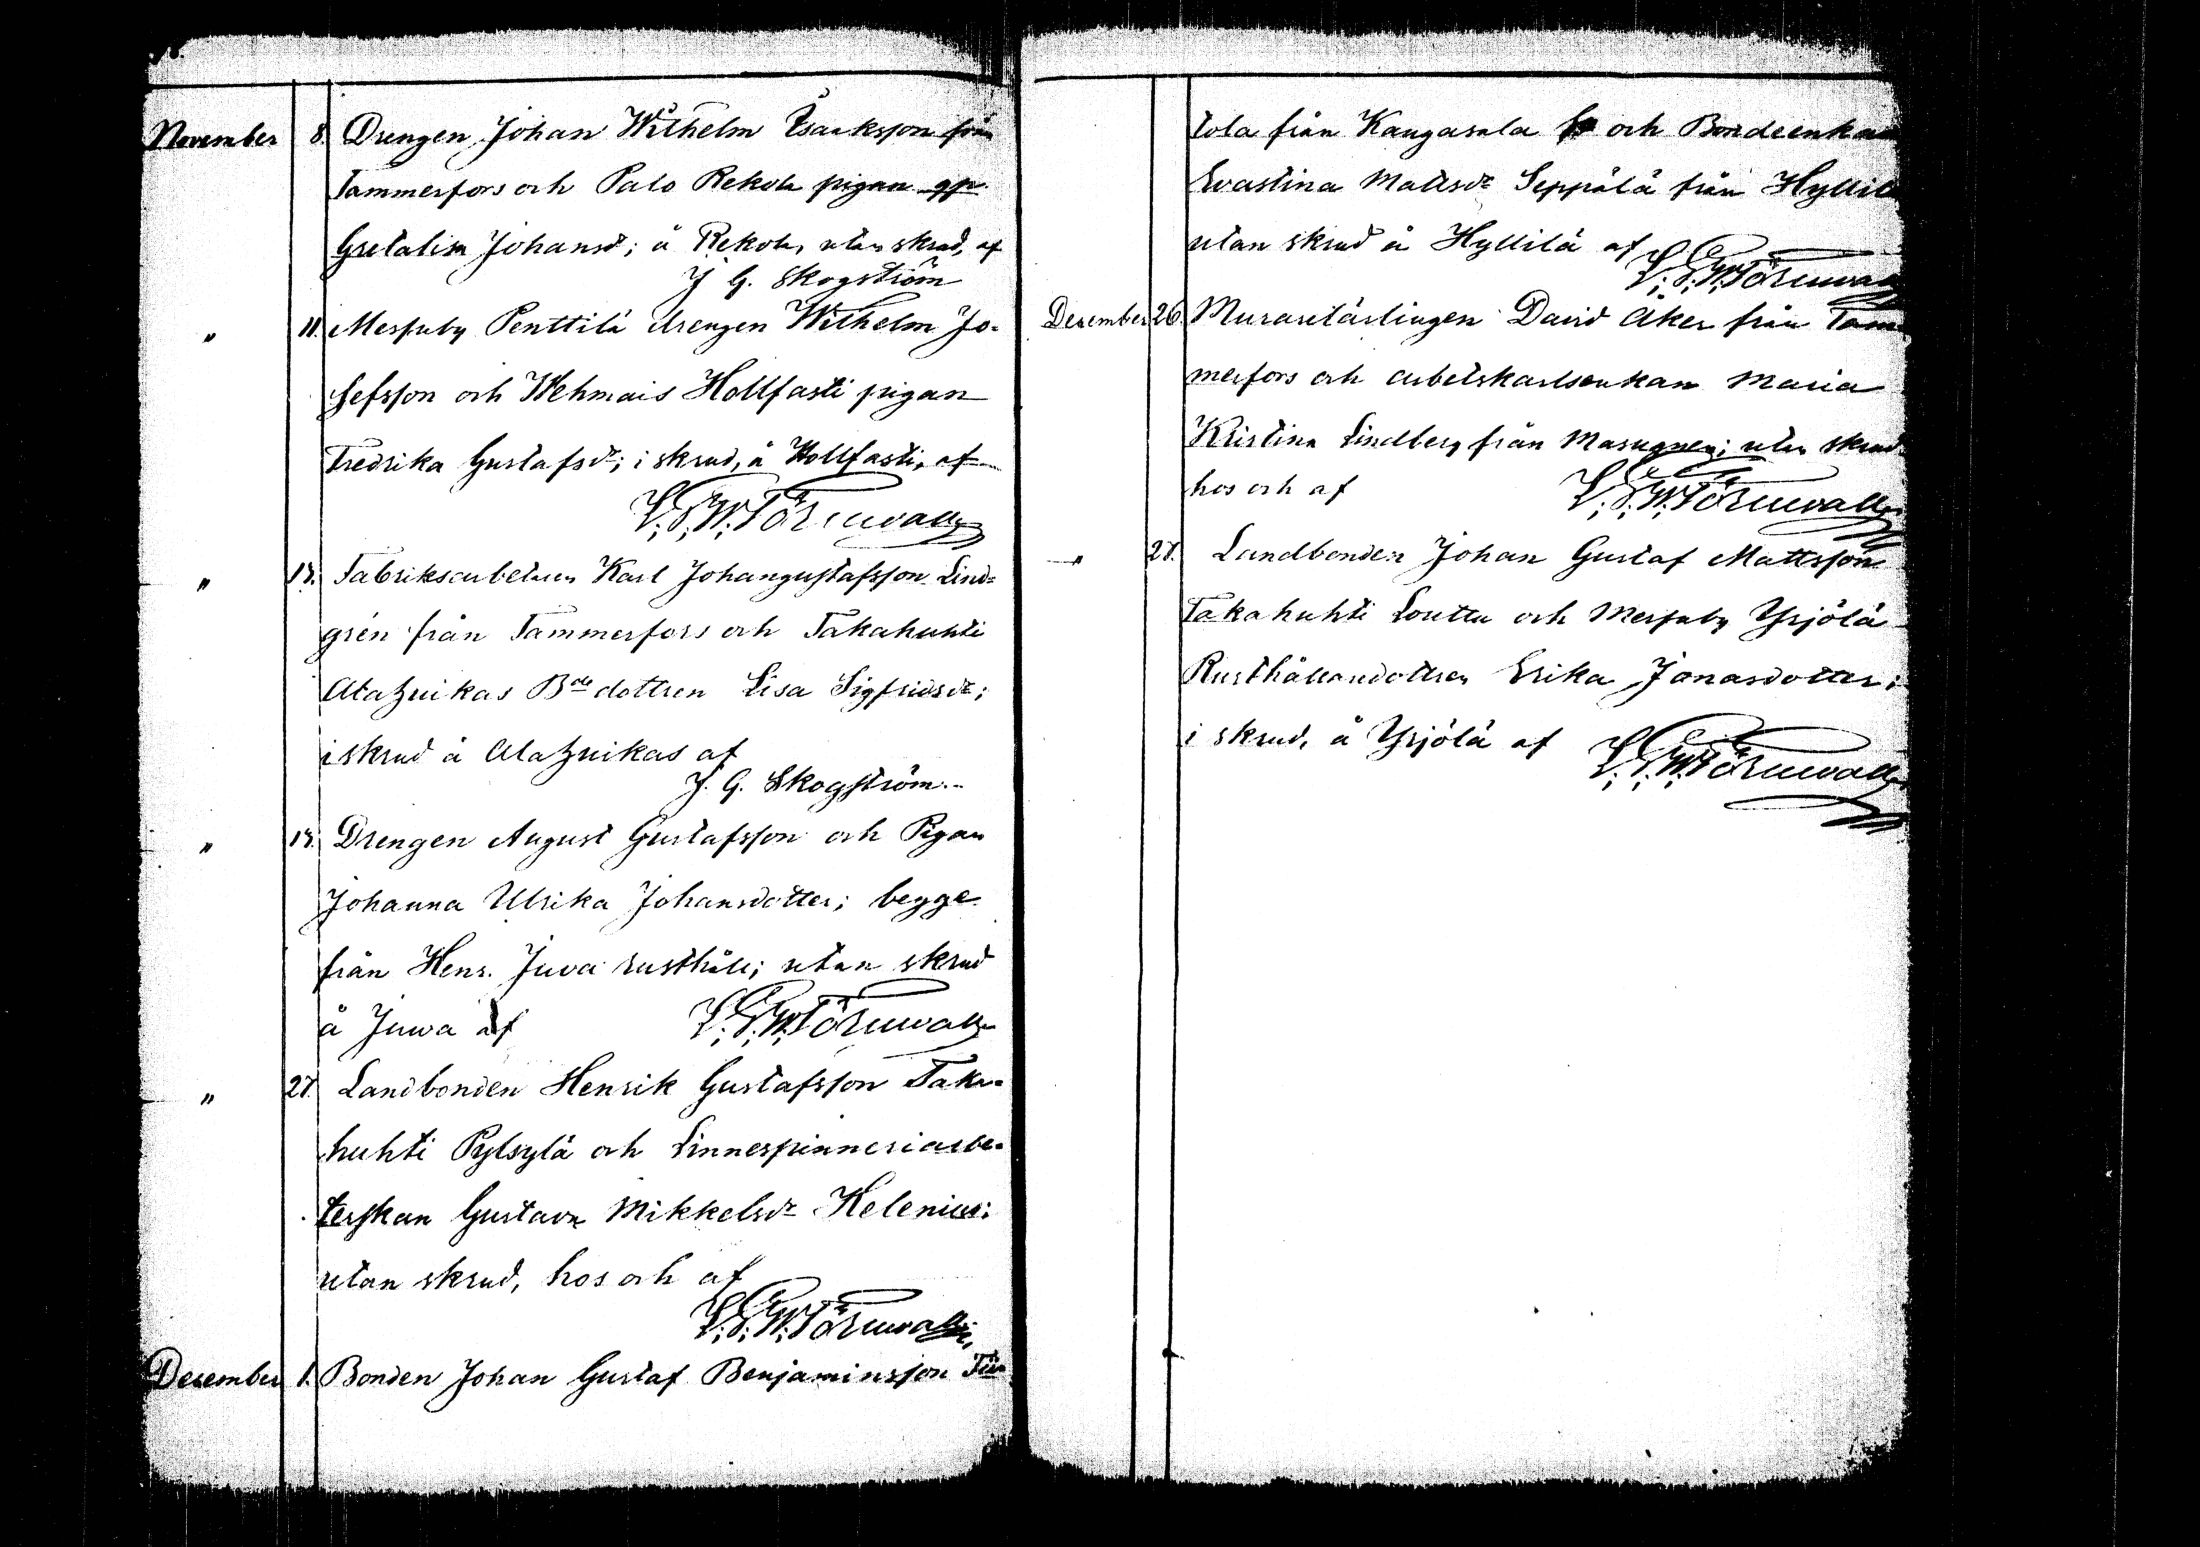 November 8. Drengen Johan Wilhelm Isaksson från
Tammerfors och Palo Rekola pigan
Gretalisa Johansd; å Rekola, utan skrud, af
J G. Skogström
" 11. Messuby Penttilä drengen Wilhelm Jo-
sefsson och Wehmais Hollfasti pigan
Fredrika Gustafsdr; i skrud, å Hollfasti, af
V. F. W. Törnwall
" 13. Fabriksarbetaren Karl Johangustafsson Lind=
grén från Tammerfors och Takahuhti
Alazuikas Bde dottren Lisa Sigfridsdr;
i skrud å Alazuikas af
J. G. Skogström.-
" Drengen August Gustafsson och Pigan
Johanna Ulrika Johansdotter; begge
från Hens. Juva rusthåll; utan skrud
å Juwa af V. F. W. Törnwall
" 27. Landbonden Henrik Gustafsson Taka-
huhti Pylsylä och Linnespinneriarbe-
terskan Gustava Mikkelsdr Helenius;
utan skrud, hos och af
V. F. W. Törnwall
December 1. Bonden Johan Gustaf Benjaminsson
tola från Kangasala och Bondeenkan
Evastina Mattsdr Seppälä från Hyllilä
utan skrud å Hyllilä af V. F. W. Törnwall
December 26. Muraretärlingen David Aker från Tam
merfors och arbetskarlsenkan Maria
Kristina Lindberg från Masugnen; utan skrud
hos och af V. F. W. Törnwall
" 27. Landbonden Johan Gustaf Mattsson
Takahuhti Louttu och Messuby Yrjölä
Rusthållaredottren Erika Jonasdotter;
i skrud, å Yrjölä af V. F. W. Törnwall